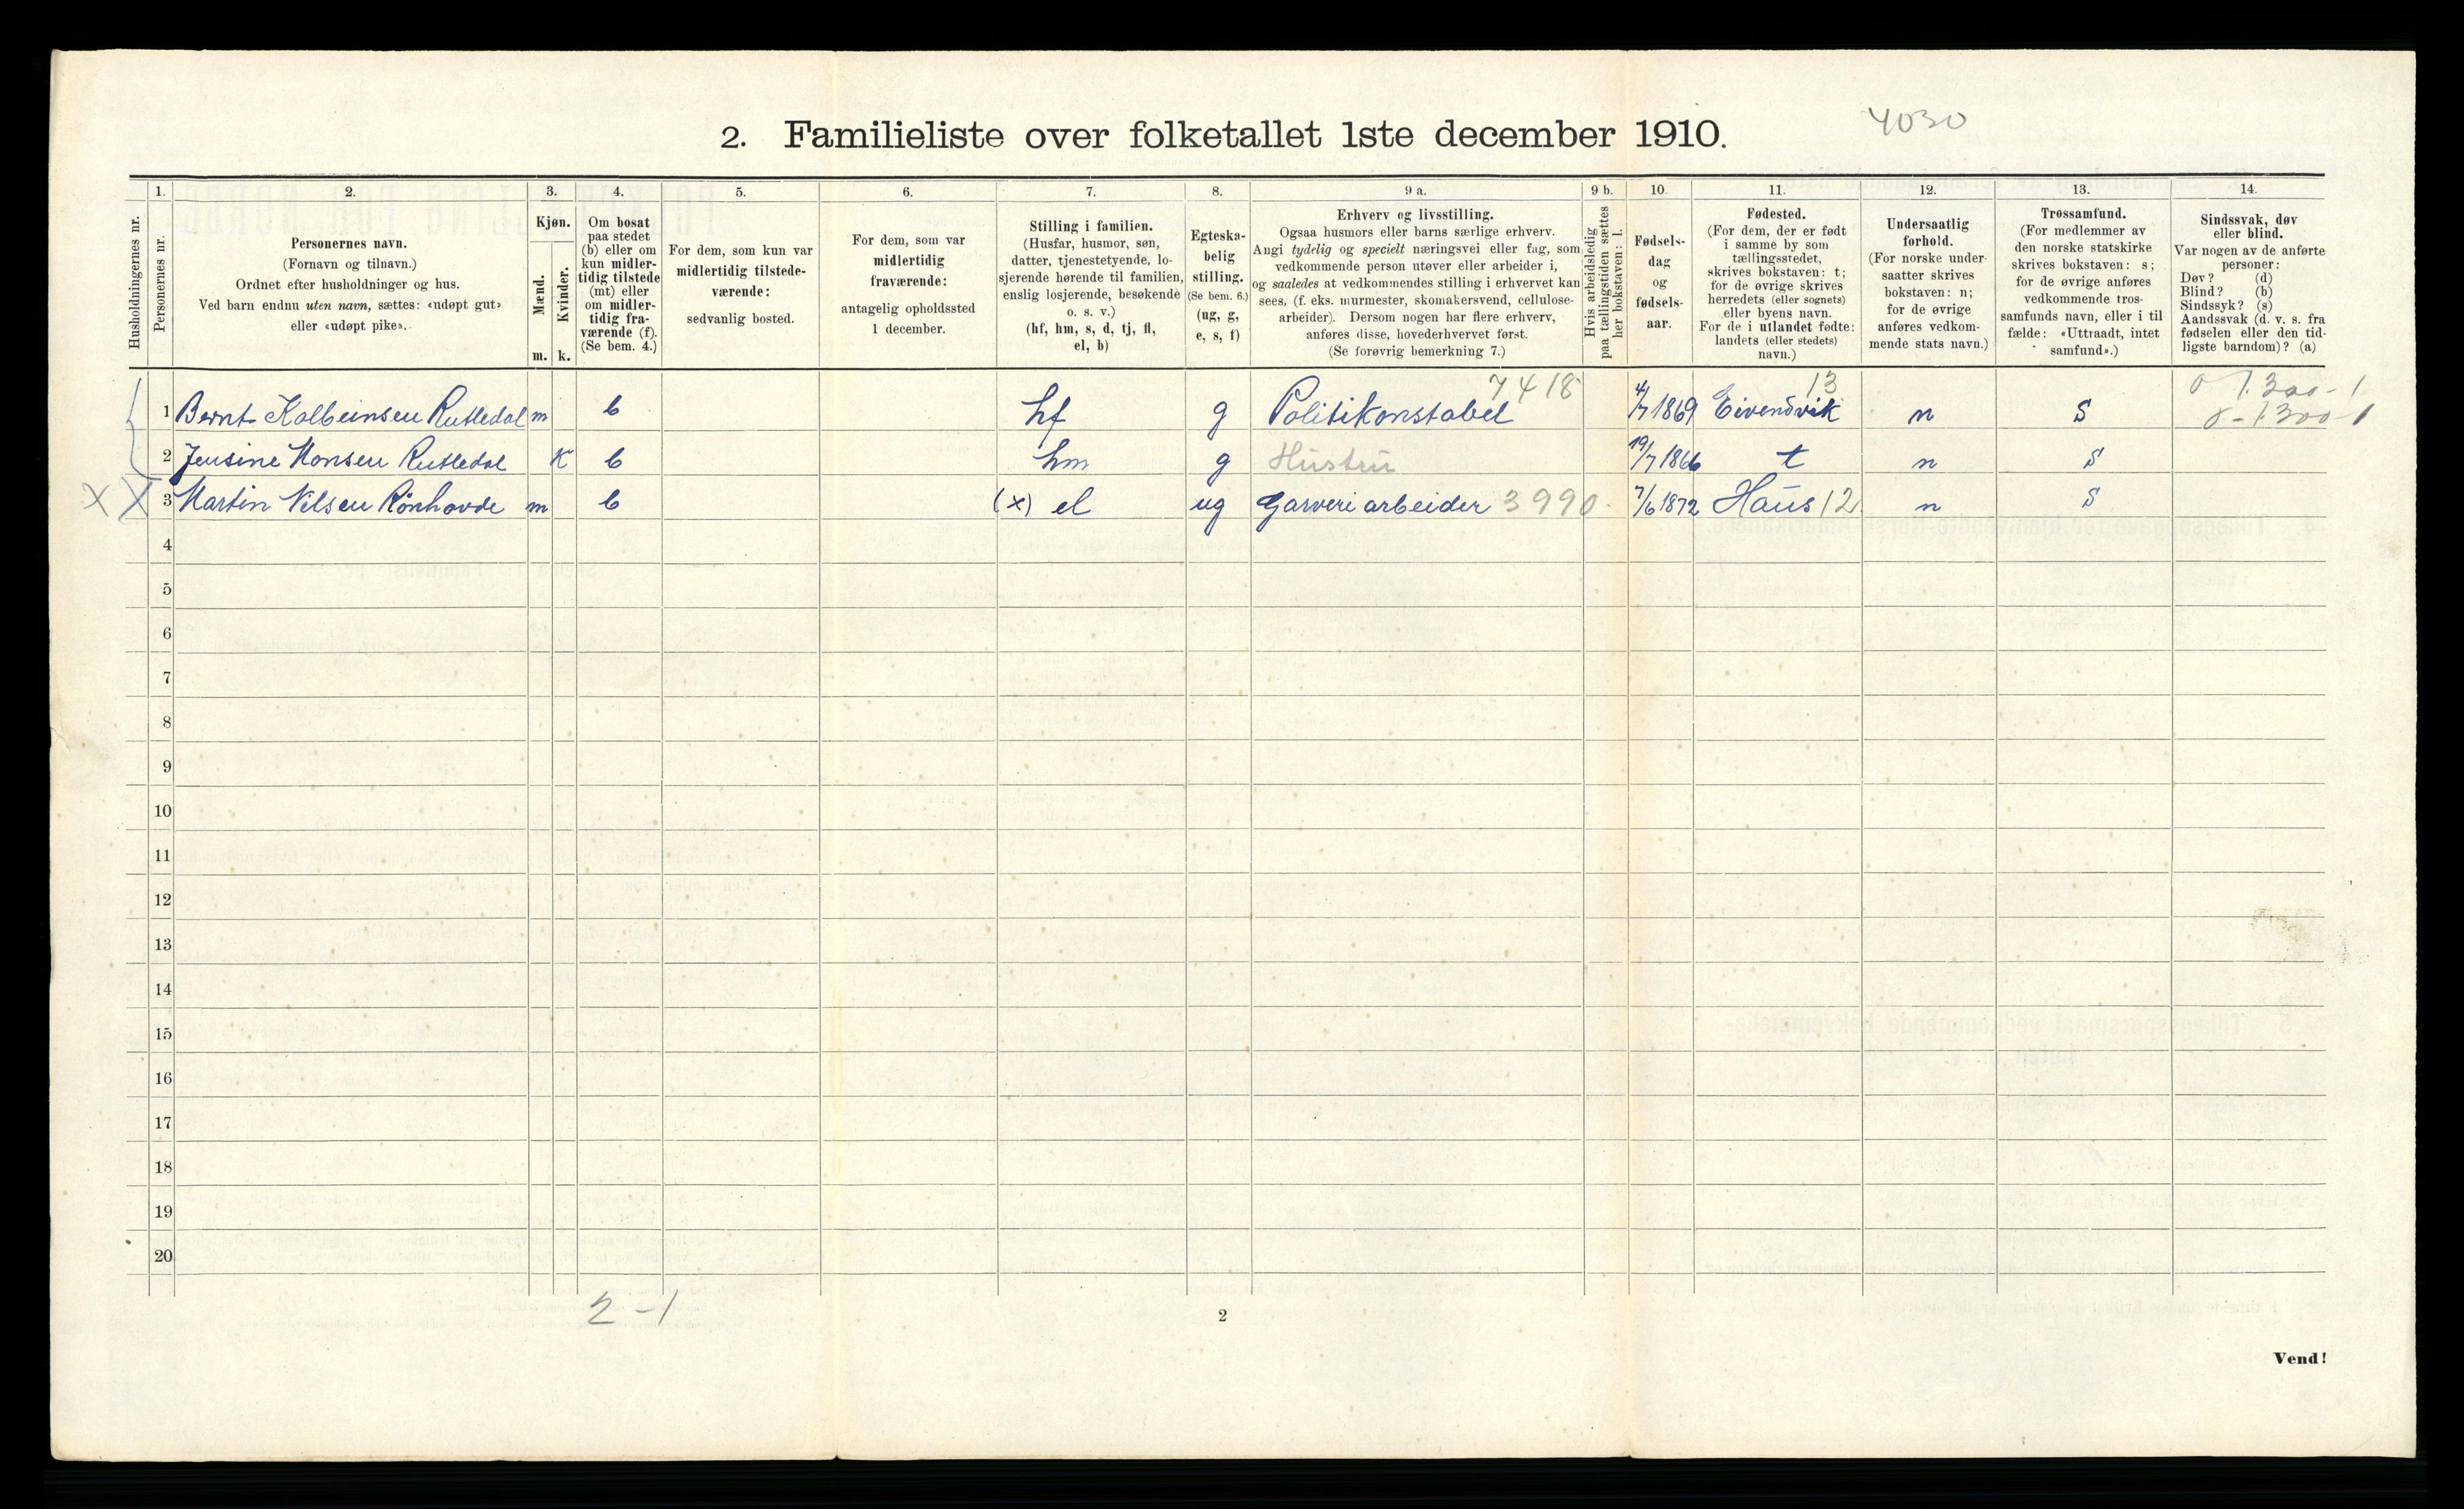 2. Familieliste over folketallet 1ste december 1910.
4030
Husholdningernes nr.
1.
Personernes nr.
2.
Personernes navn.
(Fornavn og tilnavn.)
Ordnet efter husholdninger og hus.
Ved barn endnu uten navn, sættes: «udøpt gut»
eller «udøpt pike».
3.
Kjøn.
Mænd.
Kvinder.
m. k.
4.
Om bosat
paa stedet
(b) eller om
kun midler-
tidig tilstede
(mt) eller
om midler-
tidig fra-
værende (f).
(Se bem. 4.)
5.
For dem, som kun var
midlertidig tilstede-
værende:
sedvanlig bosted.
6.
For dem, som var
midlertidig
fraværende:
antagelig opholdssted
1 december.
7.
Stilling i familien.
(Husfar, husmor, søn,
datter, tjenestetyende, lo-
sjerende hørende til familien,
enslig losjerende, besøkende
o. s. v.)
(hf, hm, s, d, tj, fl,
el, b)
8.
Egteska-
belig
stilling.
(Se bem. 6.)
(ug, g,
e, s, f)
9 a.
Erhverv og livsstilling.
Ogsaa husmors eller barns særlige erhverv.
Angi tydelig og specielt næringsvei eller fag, som
vedkommende person utøver eller arbeider i,
og saaledes at vedkommendes stilling i erhvervet kan
sees, (f. eks. murmester, skomakersvend, cellulose-
arbeider). Dersom nogen har flere erhverv,
anføres disse, hovederhvervet først.
(Se forøvrig bemerkning 7.)
9 b.
Hvis arbeidsledig
paa tællingstiden sættes
her bokstaven: l.
10.
Fødsels-
dag
og
fødsels-
aar.
11.
Fødested.
(For dem, der er født
i samme by som
tællingsstedet,
skrives bokstaven: t;
for de øvrige skrives
herredets (eller sognets)
eller byens navn.
For de i utlandet fødte:
landets (eller stedets)
navn.)
12.
Undersaatlig
forhold.
(For norske under-
saatter skrives
bokstaven: n;
for de øvrige
anføres vedkom-
mende stats navn.)
13.
Trossamfund.
(For medlemmer av
den norske statskirke
skrives bokstaven: s;
for de øvrige anføres
vedkommende tros-
samfunds navn, eller i til-
fælde: «Uttraadt, intet
samfund».)
14.
Sindssvak, døv
eller blind.
Var nogen av de anførte
personer:
Døv? (d)
Blind? (b)
Sindssyk? (s)
Aandssvak (d. v. s. fra
fødselen eller den tid-
ligste barndom)? (a)
7418 13 0 1.300-1
1 Bernt Kolbeinsen Rutledal m b hf g Politikonstabel 4/7 1869 Eivendvik n S 0-1300-1
2 Jensine Monsen Rutledal K b hm g Hustru 19/7 1866 t n S
X X 3 Martin Nilsen Rönhovde m b (x) el ug Garveriarbeider 3990 7/6 1872 Haus 12 n S
4
5
6
7
8
9
10
11
12
13
14
15
16
17
18
19
20
2-1
2
Vend!